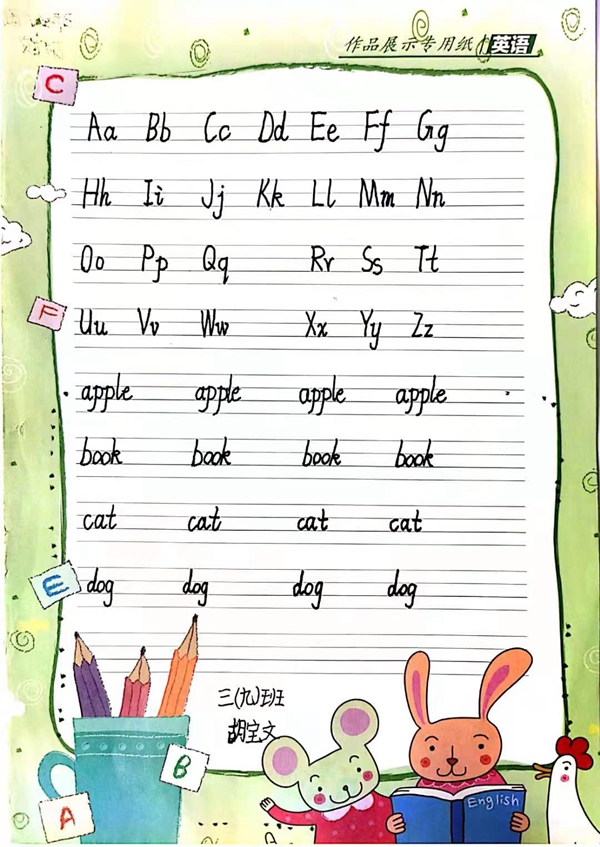 作品展示专用纸 英语
C
Aa Bb Cc Dd Ee Ff Gg
Hh Ii Jj Kk Ll Mm Nn
Oo Pp Qq Rr Ss Tt
F
Uu Vv Ww Xx Yy Zz
apple apple apple apple
book book book book
cat cat cat cat
E
dog dog dog dog
三(九)班
胡宝文
B
English
A